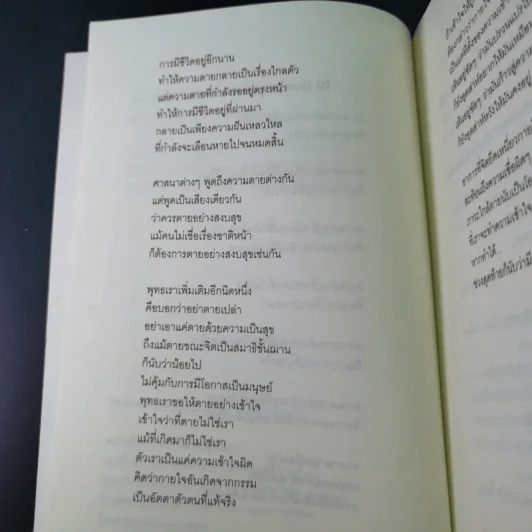 การมีชีวิตอยู่อีกนาน
ทำให้ความตายกลายเป็นเรื่องไกลตัว
แต่ความตายที่กำลังรออยู่ตรงหน้า
ทำให้การมีชีวิตอยู่ที่ผ่านมา
กลายเป็นเพียงความฝันเหลวไหล
ที่กำลังจะเลือนหายไปจนหมดสิ้น
ศาสนาต่างๆ พูดถึงความตายต่างกัน
แต่พูดเป็นเสียงเดียวกัน
ว่าควรตายอย่างสงบสุข
แม้คนไม่เชื่อเรื่องชาติหน้า
ก็ต้องการตายอย่างสงบสุขเช่นกัน
พุทธเราเพิ่มเติมอีกนิดหนึ่ง
คือบอกว่าอย่าตายเปล่า
อย่าเอาแค่ตายด้วยความเป็นสุข
ถึงแม้ตายขณะจิตเป็นสมาธิขั้นฌาน
ก็นับว่าน้อยไป
ไม่คุ้มกับการมีโอกาสเป็นมนุษย์
พุทธเราขอให้ตายอย่างเข้าใจ
เข้าใจว่าที่ตายไม่ใช่เรา
แม้ที่เกิดมาก็ไม่ใช่เรา
ตัวเราเป็นแค่ความเข้าใจผิด
คิดว่ากายใจอันเกิดจากกรรม
เป็นอัตตาตัวตนที่แท้จริง
อาการที่จิตยึดเหนี่ยวการ
สะท้อนถึงความเชื่อผิดๆ
ภาวะใกล้ตายนับเป็นโอ
ที่เราจะทำความเข้าใจ
หากทำได้...
ช่วงสุดท้ายก็นับว่ามี